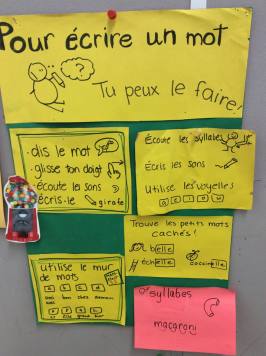 Pour écrire un mot
?
Tu peux le faire!
• dis le mot
• glisse ton doigt
• écoute les sons
• écris-le girafe
Écoute les syllabes
Écris les sons
Utilise les voyelles
Trouve les petits mots
cachés!
belle
échelle
coccinelle
utilise le mur
de mots
a b c d
bon chez
syllabes
macaroni